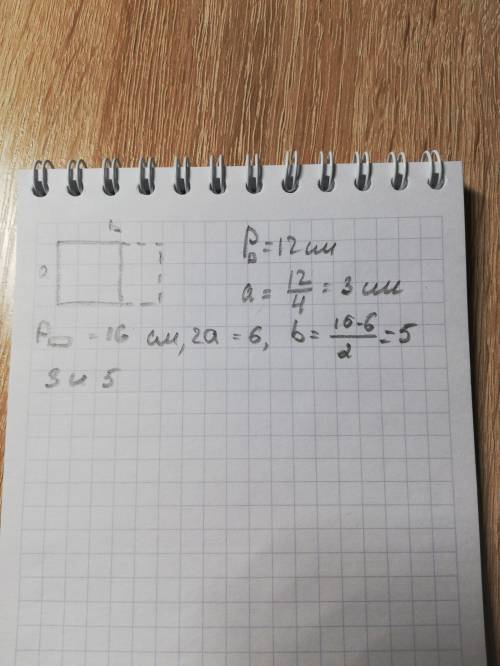 b
a
P□ = 12 см
a = 12/4 = 3 см
P▭ = 16 см, 2a = 6, b = (16-6)/2 = 5
3 и 5